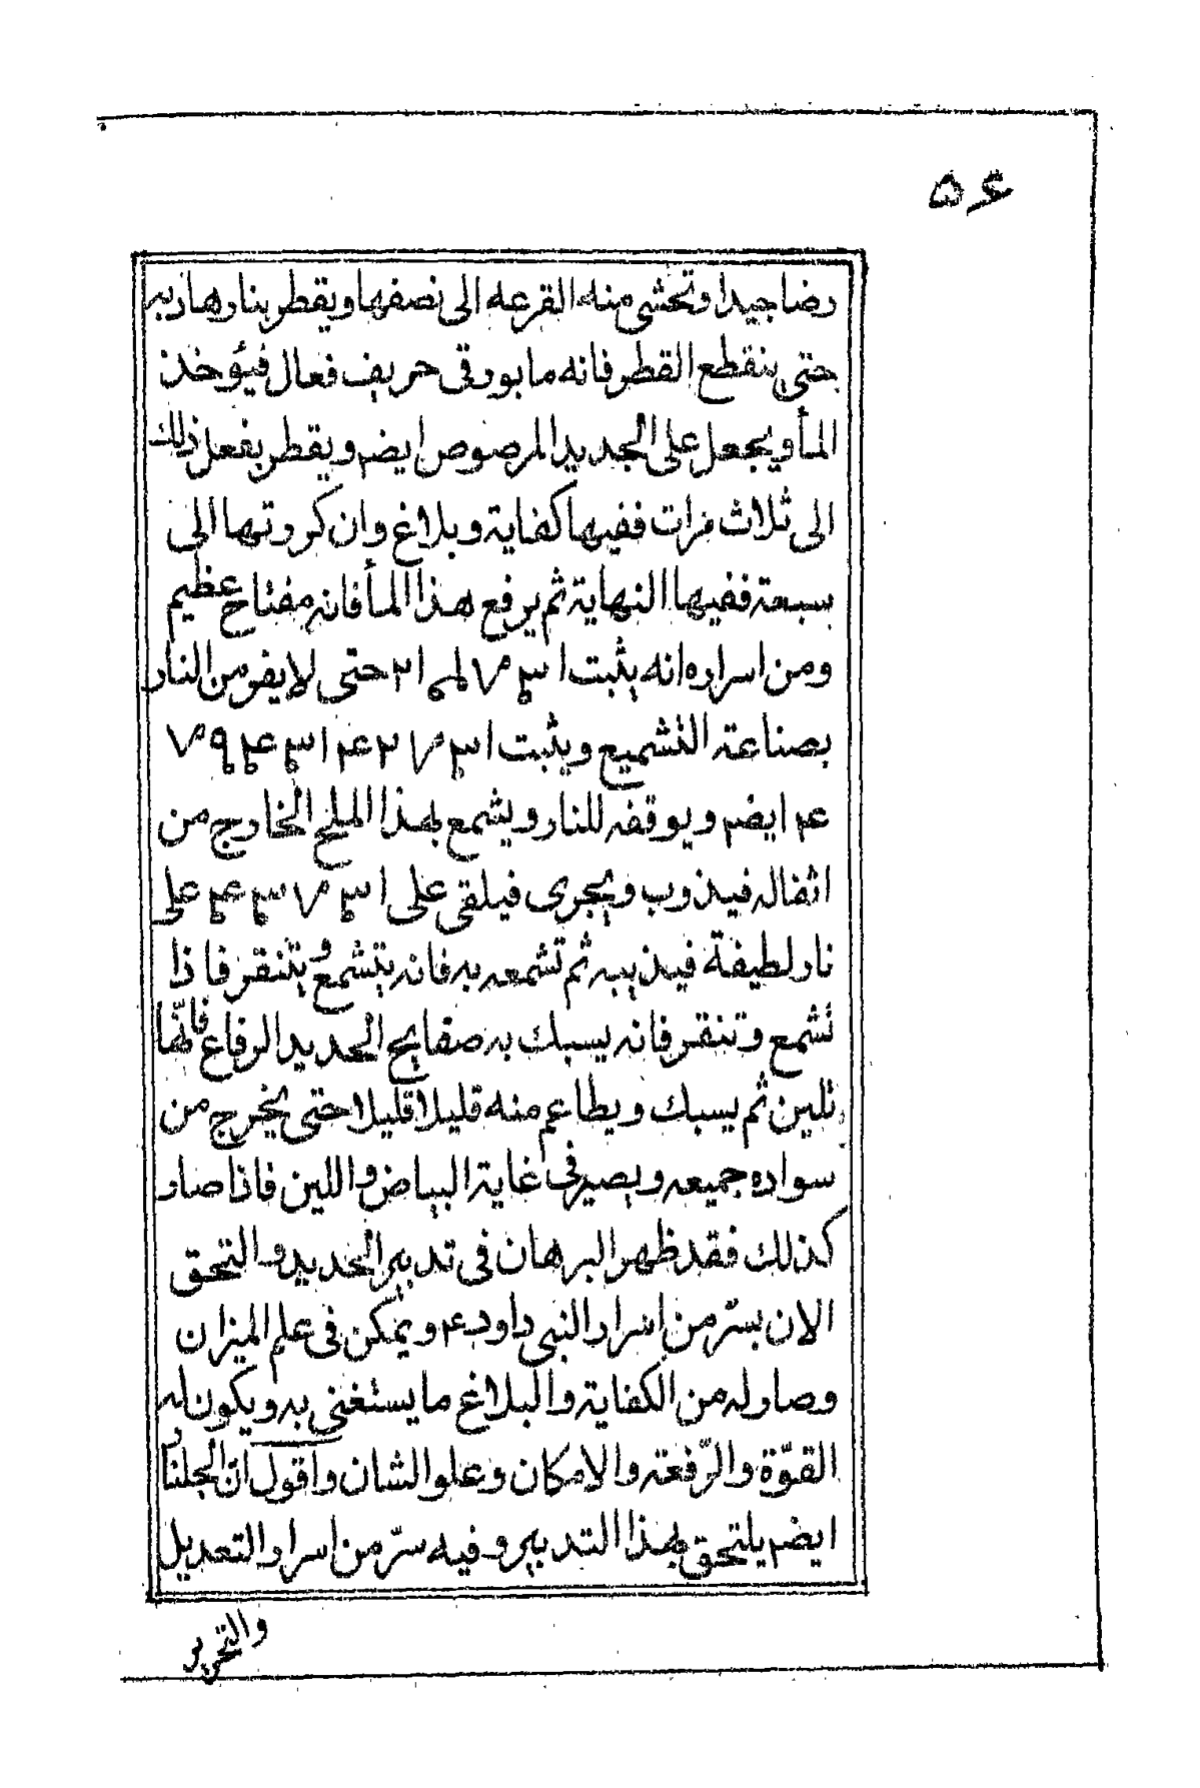 ۵۶
رضا جيدا وتحشى منه القرعه الى نصفها ويقطر بنار هاديه
حتى ينقطع القطر فانه ما بورقى حريف فعال فيؤخذ
المأ ويجعل على الجديد المرصوص ايضم ويقطر يفعل ذلك
الى ثلاث مرات ففيها كفاية وبلاغ وان كررتها الى
سبعة ففيها النهاية ثم يرفع هذا المأ فانه مفتاح عظيم
ومن اسراره انه يثبت حتى لا يفر من النار
بصناعة التشميع ويثبت
ايضم ويوقفه للنار ويشمع بهذا الملح الخارج من
اثفاله فيذوب ويجرى فيلقى على على
نار لطيفة فيذيبه ثم تشمعه به فانه يتشمع ويتنقر فاذا
تشمع وتنقر فانه يسبك به صفايح الحديد الرقاع فانها
تلين ثم يسبك ويطاعم منه قليلا قليلا حتى يخرج من
سواده جميعه ويصير فى غاية البياض واللين فاذا صار
كذلك فقد ظهر البرهان فى تدبير الحديد والتحق
الان بسرّ من اسرار النبى داود ع ويمكن فى علم الميزان
وصار له من الكفاية والبلاغ ما يستغنى به ويكون له
القوّة والرّفعة والامكان وعلو الشان واقول ان
ايضم يلتحق بهذا التدبير وفيه سرّ من اسرار التعديل
والتحرير